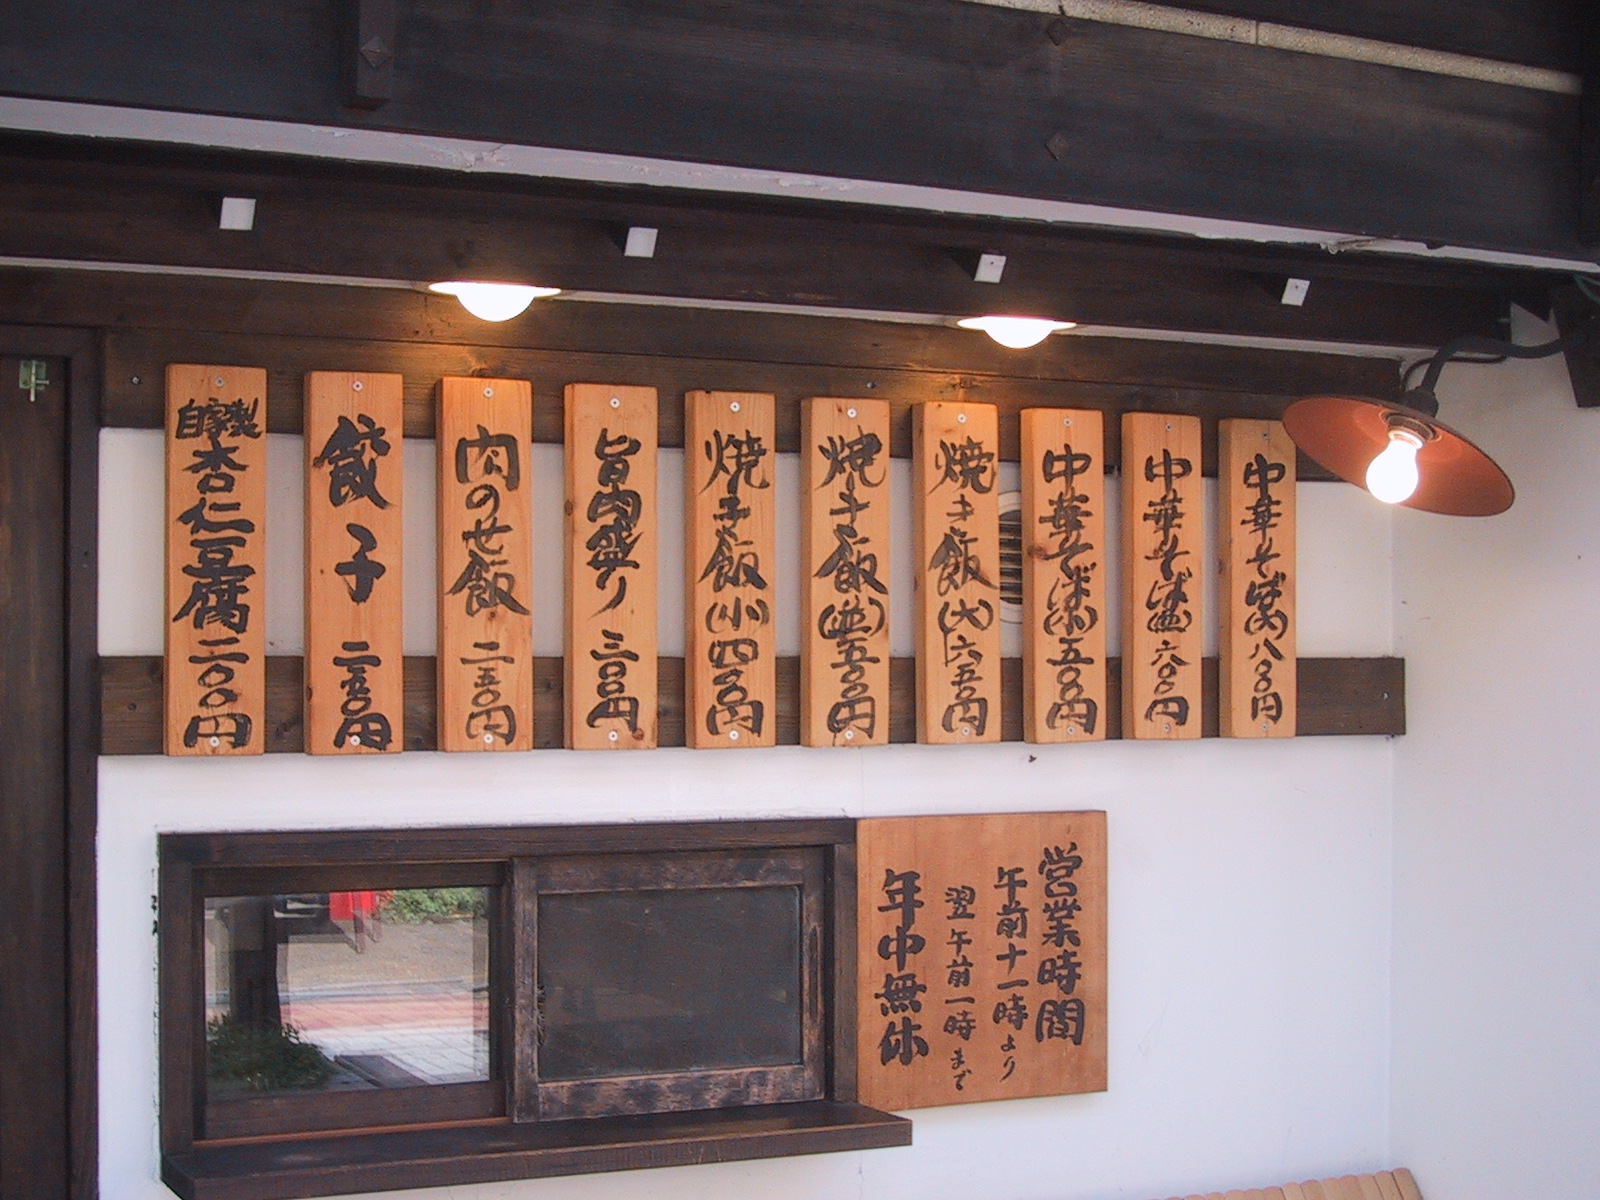 中華そば(大)八〇〇円
中華そば(並)六〇〇円
中華そば(小)五〇〇円
焼き飯(大)六五〇円
焼き飯(並)五〇〇円
焼き飯(小)四〇〇円
旨肉盛り三〇〇円
肉のせ飯二五〇円
餃子二五〇円
自家製杏仁豆腐二〇〇円
営業時間
午前十一時より
翌午前一時まで
年中無休